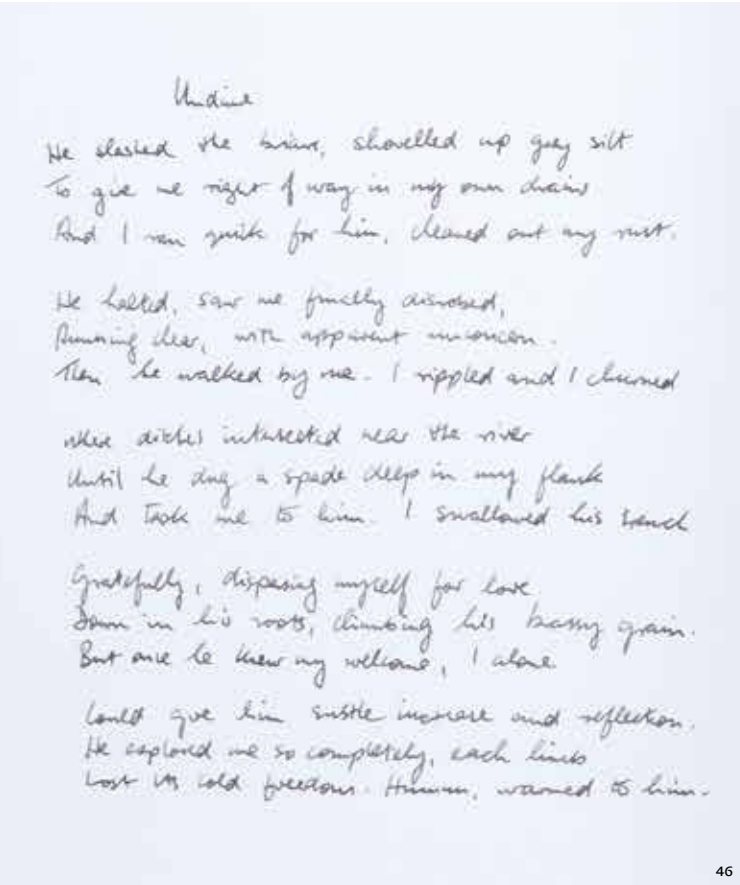 Undine
He slashed the briars, shovelled up grey silt
To give me right of way in my own drains
And I ran quick for him, cleaned out my rust.
He halted, saw me finally disrobed,
Running clear, with apparent unconcern.
Then he walked by me. I rippled and I churned
where ditches intersected near the river
Until he dug a spade deep in my flank
And took me to him. I swallowed his trench
Gratefully, dispersing myself for love
Down in his roots, climbing his brassy grain.
But once he knew my welcome, I alone
Could give him subtle increase and reflection.
He explored me so completely, each limb
Lost its cold freedom. Human, warmed to him.
46